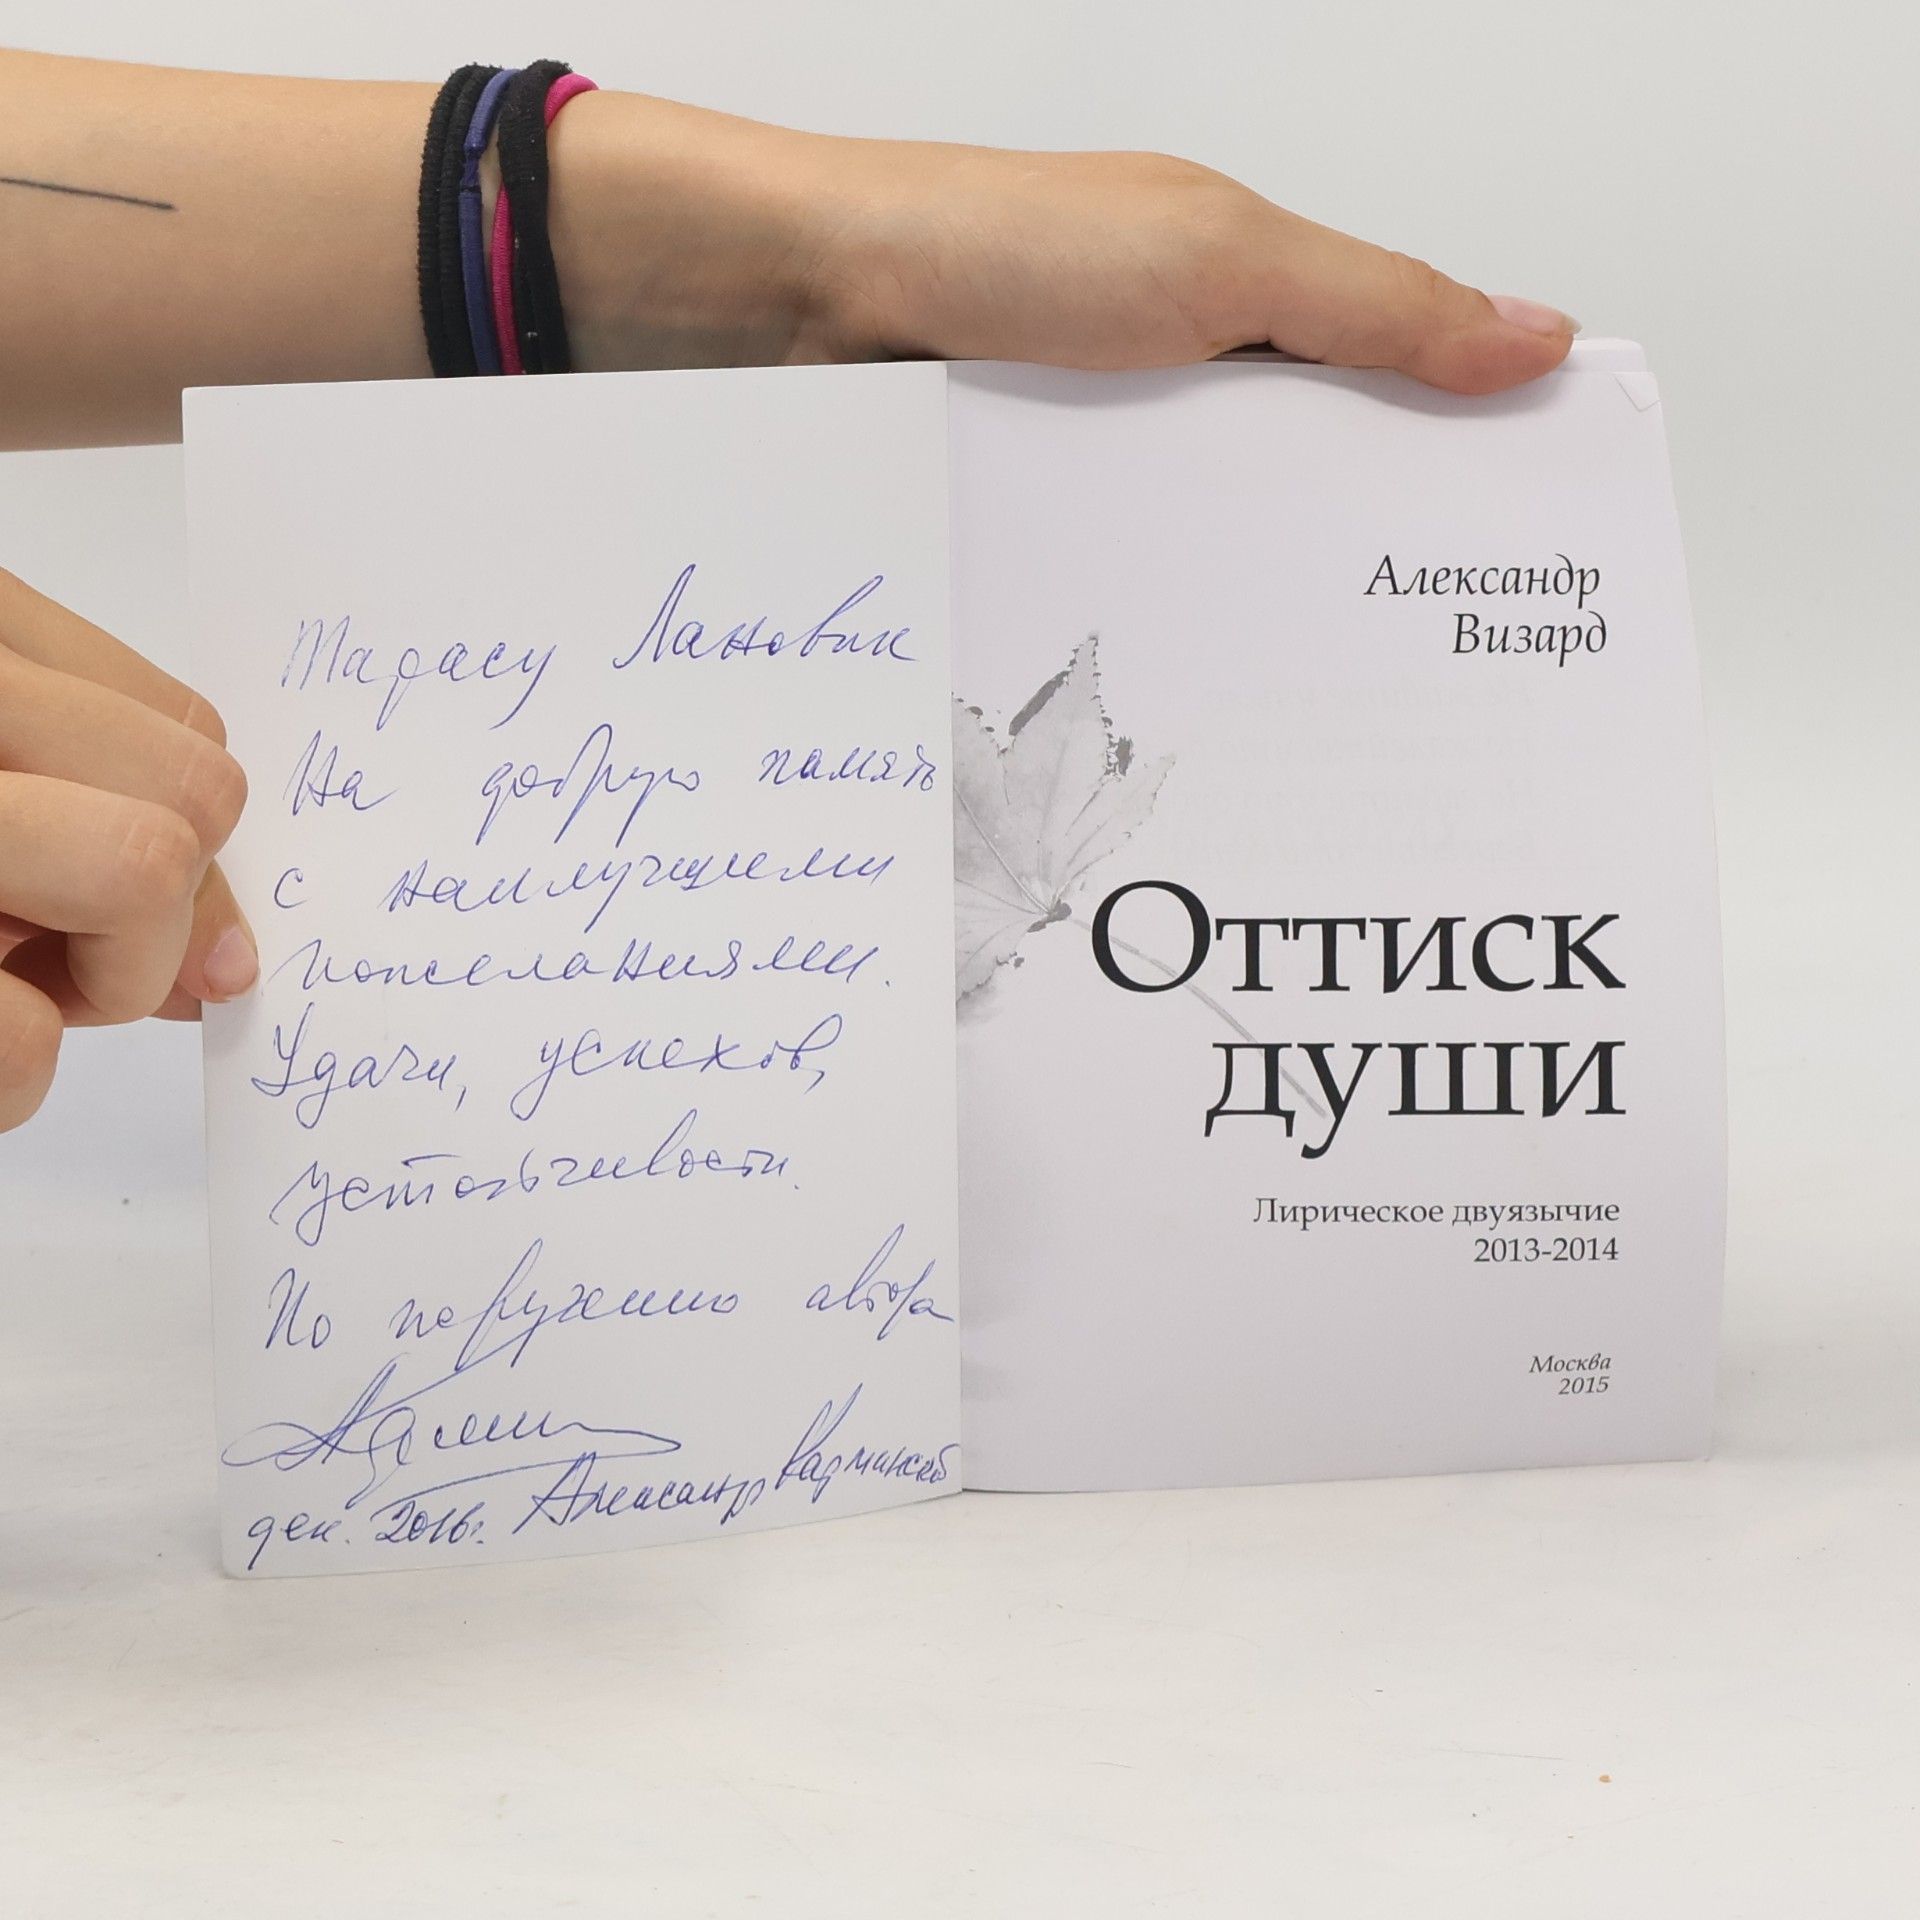 Тарасу Лановик
На добрую память
с наилучшими
пожеланиями.
Удачи, успехов,
устойчивости.
По поручению автора
дек. 2016г. Александр
Александр
Визард
Оттиск
души
Лирическое двуязычие
2013-2014
Москва
2015